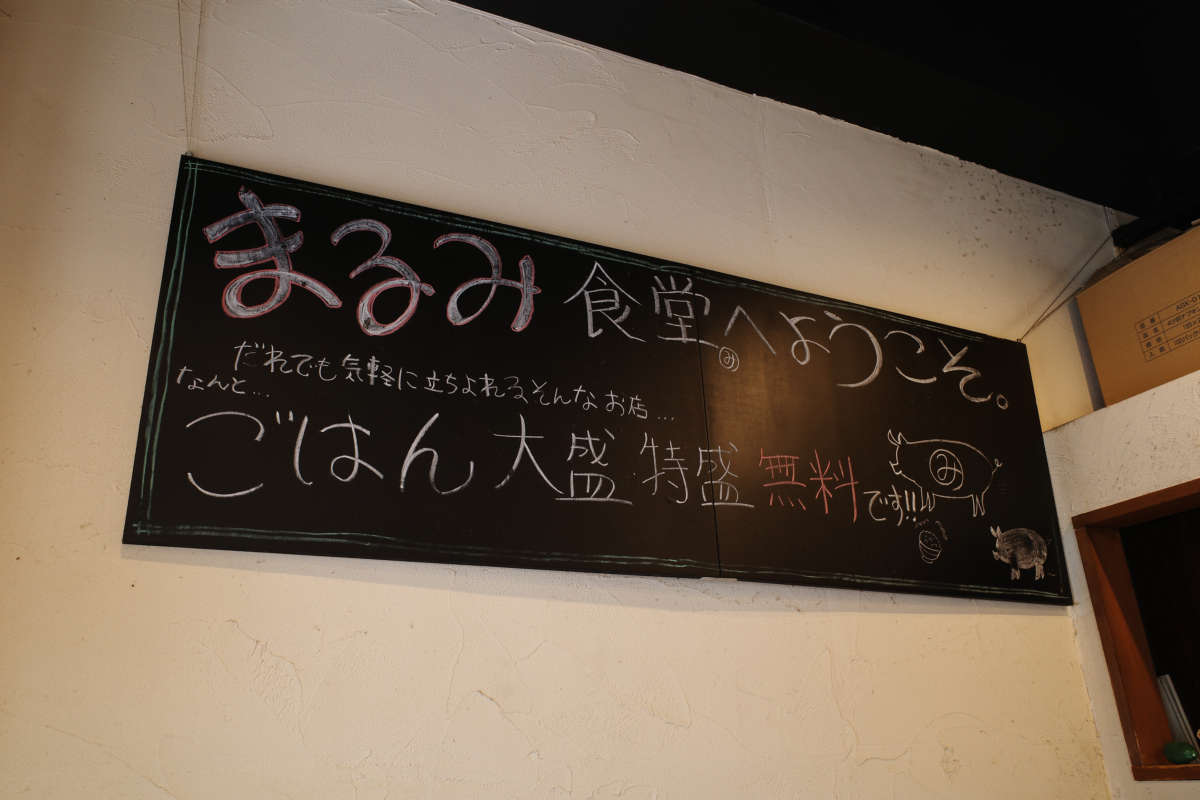 まるみ食堂へようこそ。
み
だれでも気軽に立ちよれるそんなお店...
なんと...
ごはん大盛特盛無料です!!
み